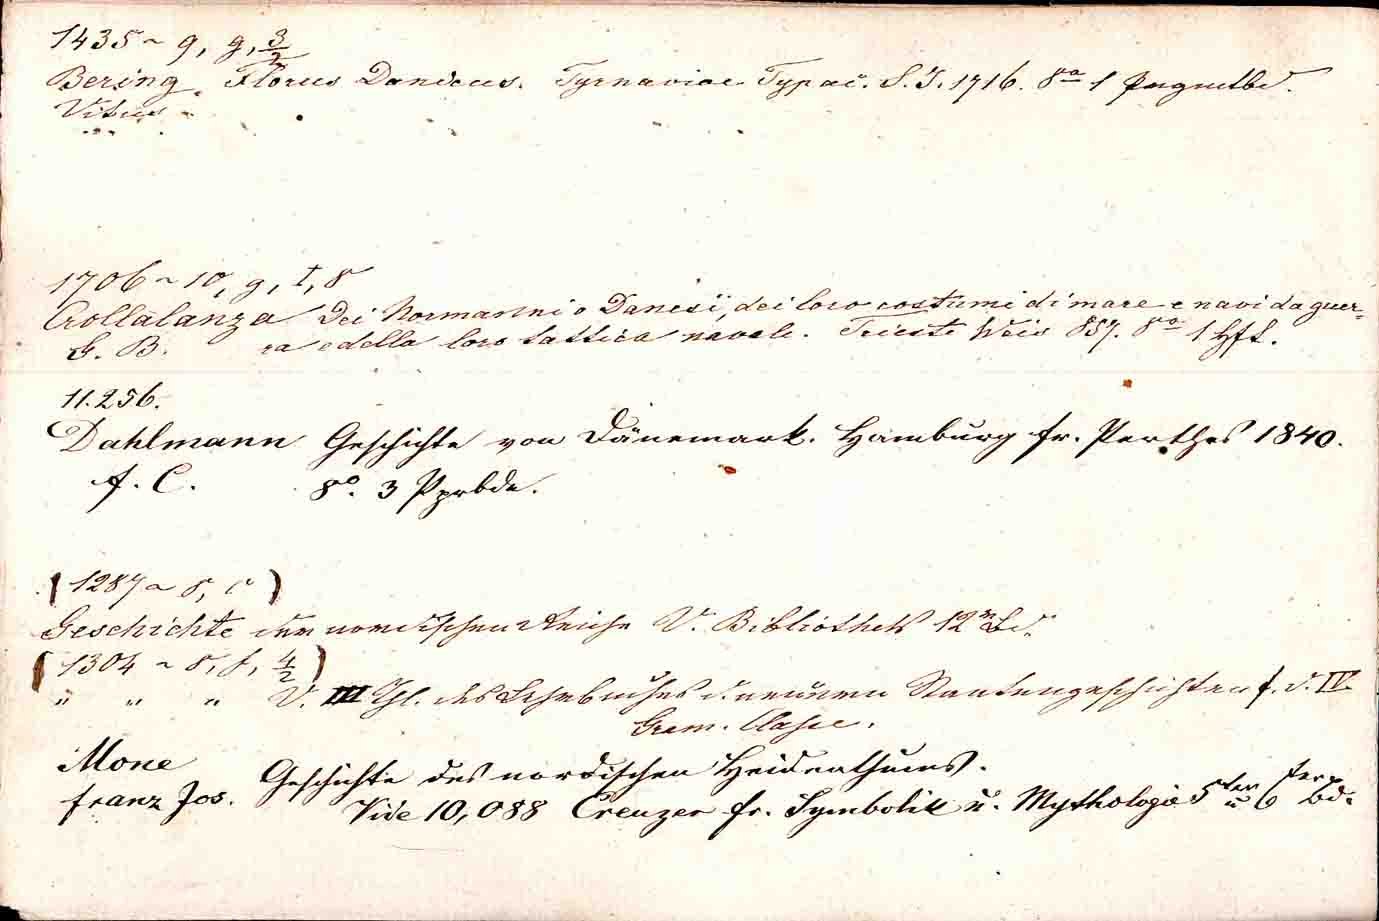 1435 ~ 9, g, 3/2
Bering Florus Danicus. Tyrnaviae Typ. ac. S. J. 1716. 8o 1 Prgmtbd.
Vitus
1706 ~ 10, g, †, 8
Crollalanza Dei Normanni o Danesi, dei loro costumi di mare e navi da guer=
G. B. ra e della loro tattica navale. Trieste Weis 857. 8o 1 Hft.
11.256.
Dahlmann Geschichte von Dänemark. Hamburg Fr. Perthes 1840.
F. C. 8o. 3 Pprbde.
(1287 ~ 8, c)
Geschichte der nordischen Reiche V. Bibliothek 12r Bd.
(1304 ~ 8, f, 4/2)
" " " V. III Thl. des Lehrbuches d. neueren Staatengeschichte f. d. IV.
Gram. Classe.
Mone Geschichte des nordischen Heidenthums.
Franz Jos. Vide 10,088 Creuzer Fr. Symbolik u. Mythologie 5ter u 6ter Bd.